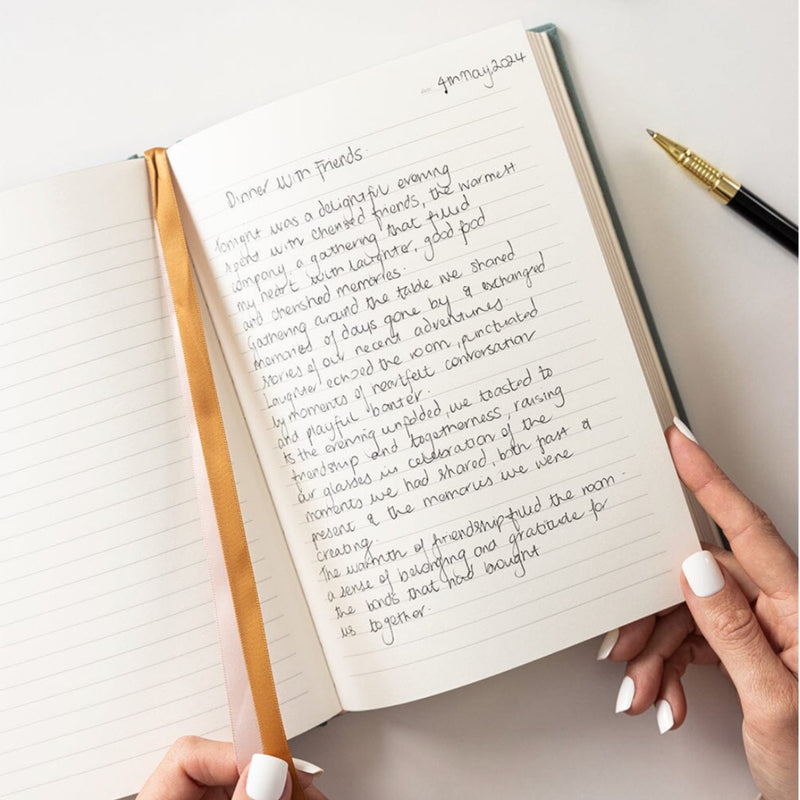 4th May 2024
Dinner with Friends.
Tonight was a delightful evening
spent with cherised friends, the warmest
company, a gathering that filled
my heart with laughter, good food
and cherished memories.
Gathering around the table we shared
memories of days gone by & exchanged
stories of our recent adventures.
Laughter echoed the room, punctuated
by moments of heartfelt conversation
and playful banter.
As the evening unfolded, we toasted to
friendship and togetherness, raising
our glasses in celebration of the
moments we had shared, both past &
present & the memories we were
creating.
The warmth of friendship filled the room.
a sense of belonging and gratitude for
the bonds that had brought
us together.